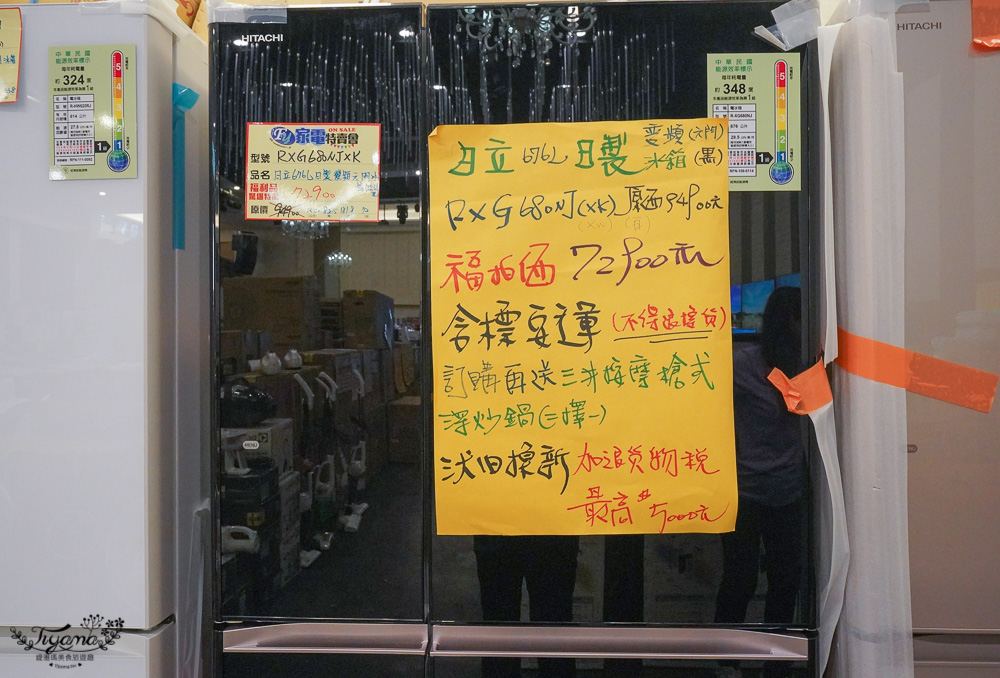 HITACHI
HITACHI
中華民國
能源效率標示
每年耗電量
約 324 度
1級
中華民國
能源效率標示
每年耗電量
約 348 度
1級
家電特賣會
ON SALE
型號 RXG680NJXK
品名 日立676L日製變頻六門冰箱
福利品
驚爆特價 72900
原價
日立 676L 日製 變頻(六門)
冰箱(黑)
RXG680NJ(XK) 原価94900元
(XW)
福拍価 72900元
含標安運 (不得退換貨)
訂購再送三洋按摩槍或
深炒鍋(二擇一)
汰旧換新 加退貨物稅
最高$5000元
Tiyama
緹雅瑪美食旅遊趣